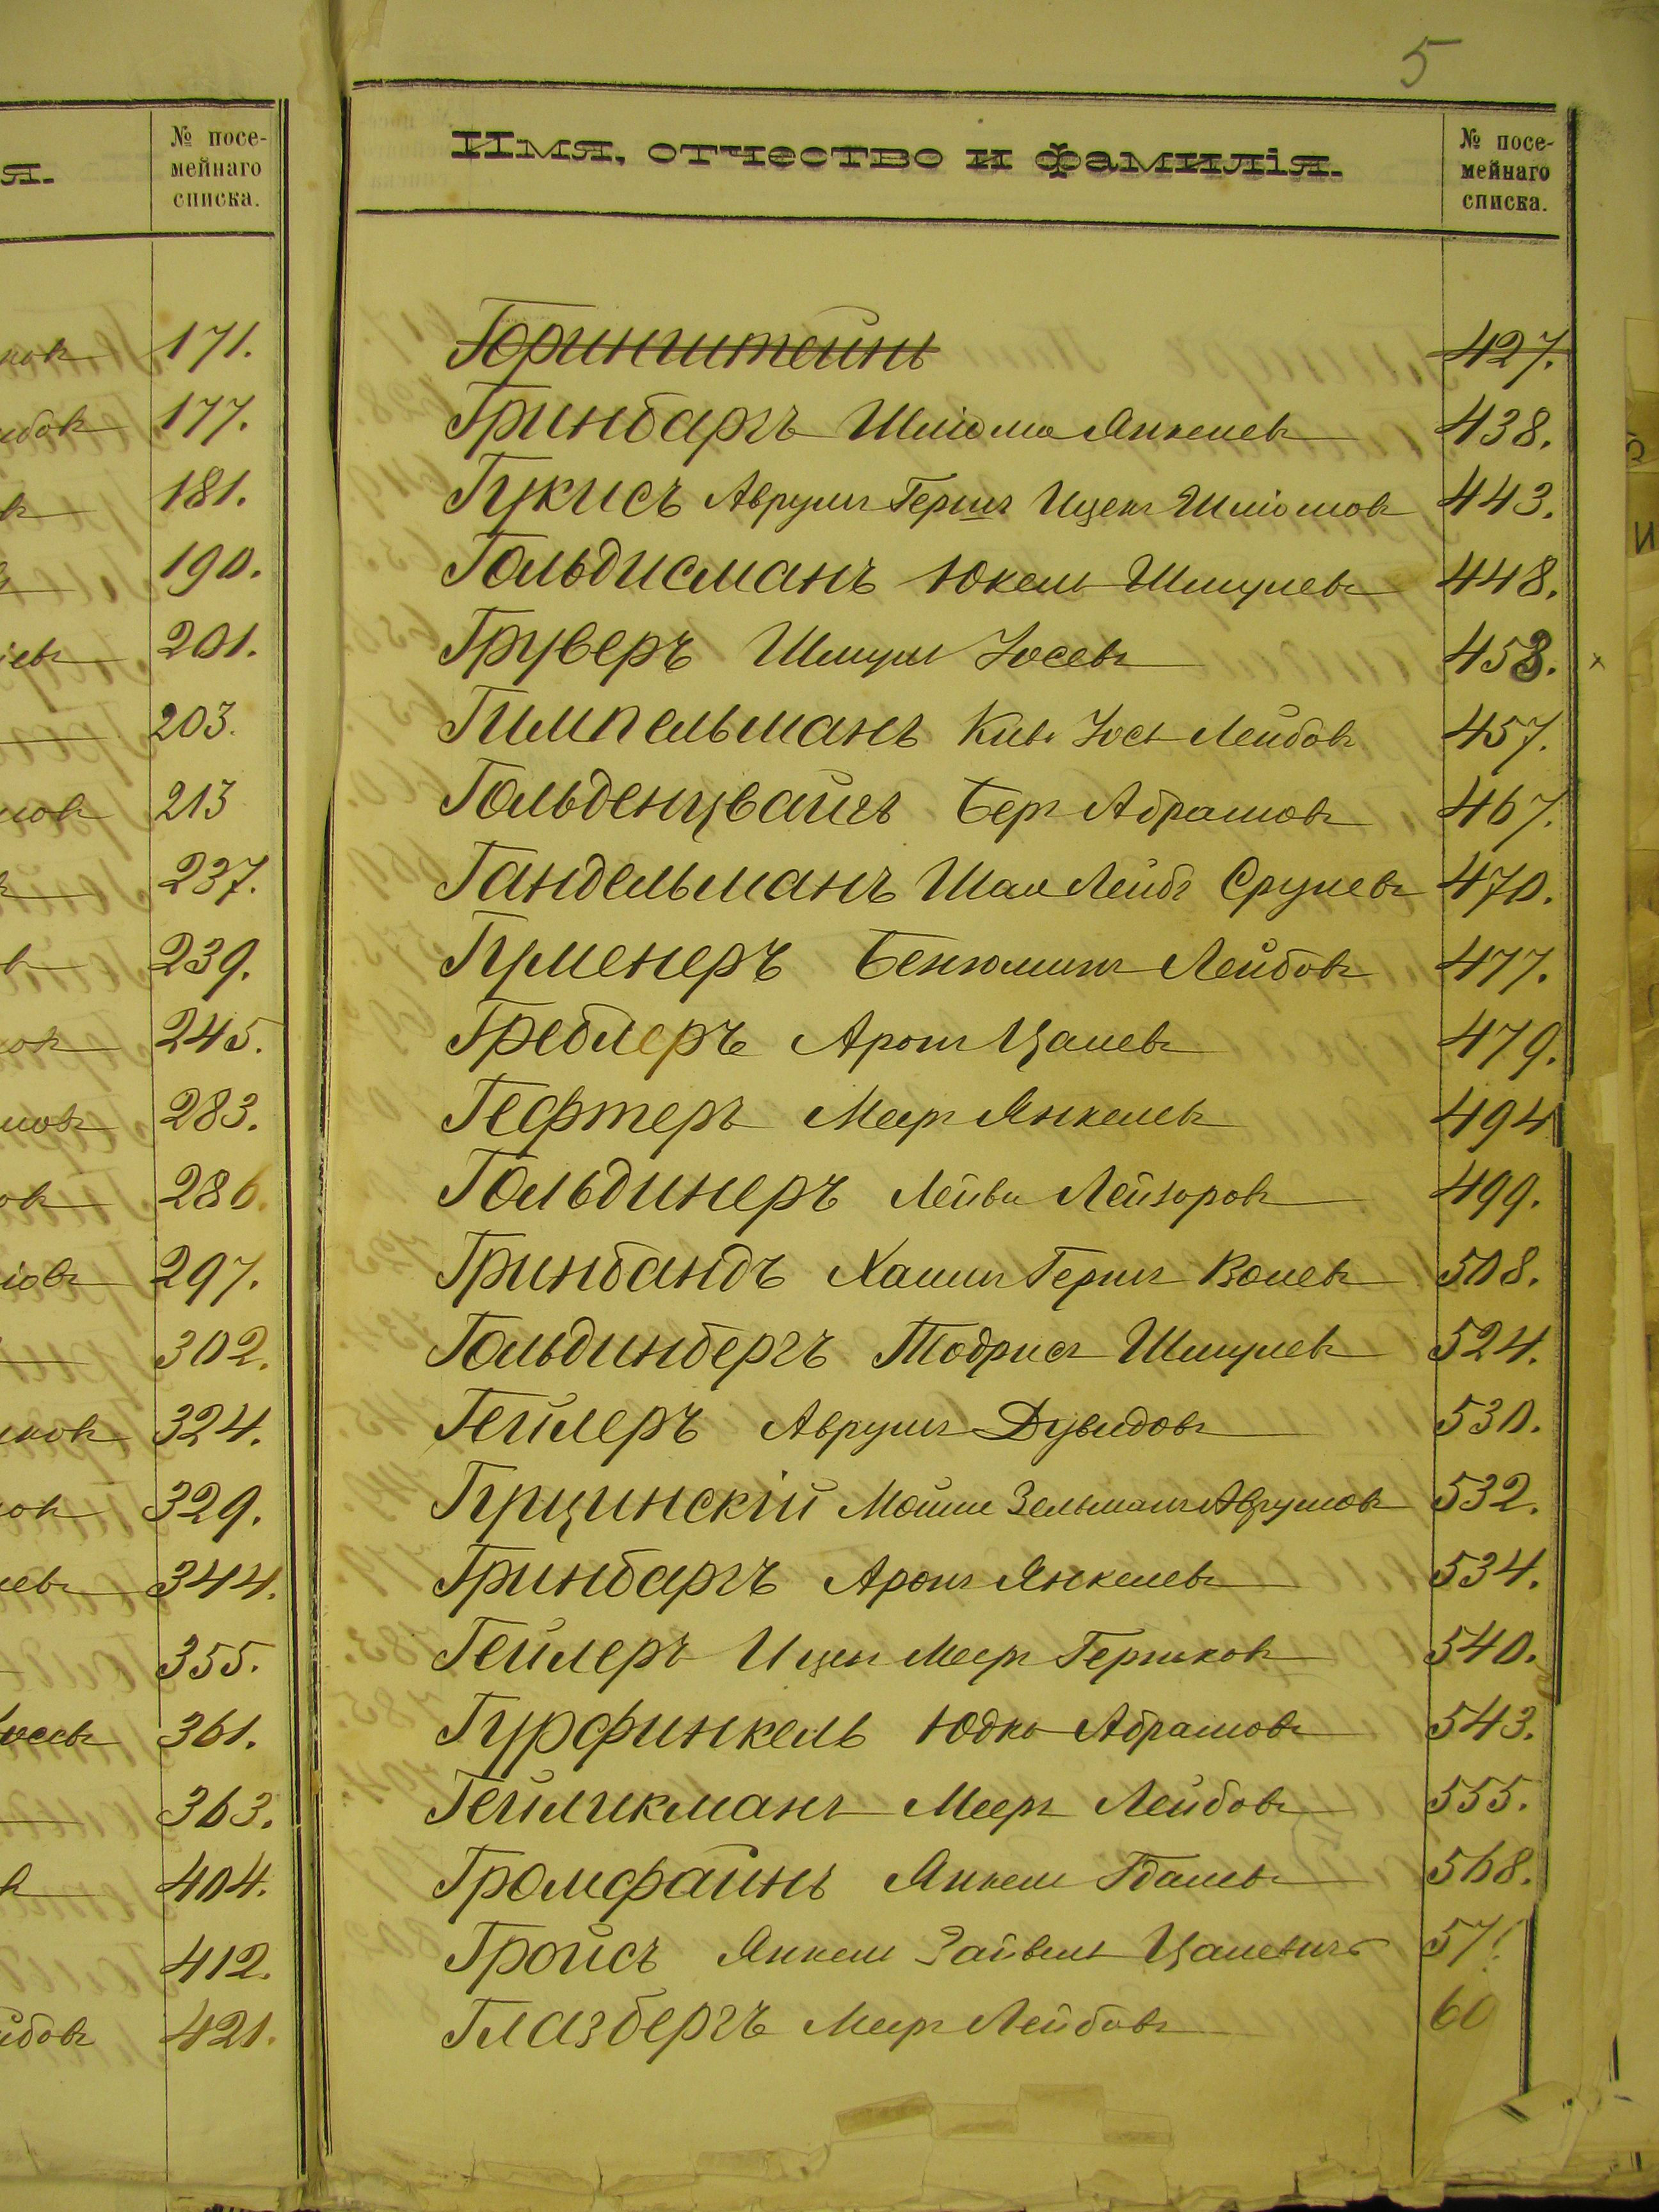 5
я.
№ посе-
мейнаго
списка.
171.
177.
181.
190.
201.
203.
213
237.
239.
245.
283.
286.
297.
302.
324.
329.
344.
355.
361.
363.
404.
412.
421.
Имя, отчество и фамилія.
№ посе-
мейнаго
списка.
Горинштейнъ 427.
Гринбаргъ Шліома Янкелевъ 438.
Гукисъ Аврумъ Гершъ Ицекъ Шліомовъ 443.
Гольдисманъ Юкель Шмулевъ 448.
Груверъ Шмуль Іосевъ 453. x
Гимпельманъ Кива Іось Лейбовъ 457.
Гольденцвайгъ Беръ Абрамовъ 467.
Гандельманъ Шая Лейбъ Срулевъ 470.
Гуменеръ Бенюминъ Лейбовъ 477.
Греблеръ Аронъ Цалевъ 479.
Гефтеръ Мееръ Янкелевъ 494
Гольдинеръ Лейви Лейзоровъ 499.
Гринбандъ Хаимъ Гершъ Волевъ 508.
Гольдинбергъ Тодрисъ Шмулевъ 524.
Гейлеръ Аврумъ Дувидовъ 530.
Гущинскій Мошие Зельманъ Аврумовъ 532.
Гринбаргъ Аронъ Янкелевъ 534.
Гейлеръ Ицекъ Мееръ Гершковъ 540.
Гурфинкель Юдко Абрамовъ 543.
Гейликманъ Мееръ Лейбовъ 555.
Громфайнъ Янкель Гдалевъ 568.
Гройсъ Янкель Зайвель Цалевичъ 571
Глазбергъ Мееръ Лейбовъ 60